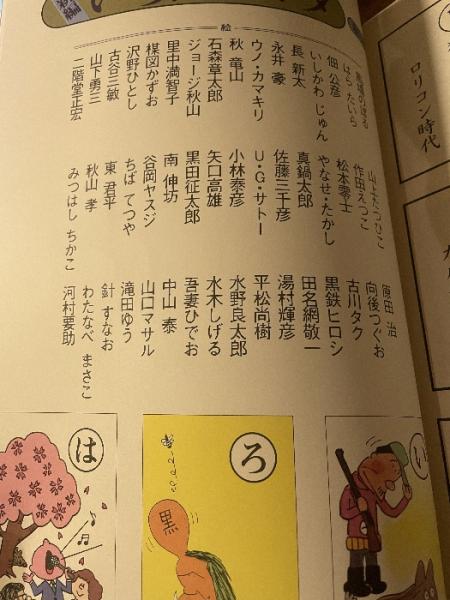 ロリコン時代
絵
馬場のぼる
はら たいら
佃 公彦
いしかわ じゅん
長 新太
永井 豪
ウノ・カマキリ
秋 竜山
石森章太郎
ジョージ秋山
里中満智子
楳図かずお
沢野ひとし
古谷三敏
山下勇三
二階堂正宏
山上たつひこ
作田えつこ
松本零士
やなせ・たかし
真鍋太郎
佐藤三千彦
U・G・サトー
小林泰彦
矢口高雄
黒田征太郎
南 伸坊
谷岡ヤスジ
ちば てつや
東 君平
秋山 孝
みつはし ちかこ
原田 治
向後つぐお
古川タク
黒鉄ヒロシ
田名網敬一
湯村輝彦
平松尚樹
水野良太郎
水木しげる
吾妻ひでお
中山 泰
山口マサル
滝田ゆう
針 すなお
わたなべ まさこ
河村要助
い
ろ
黒
は